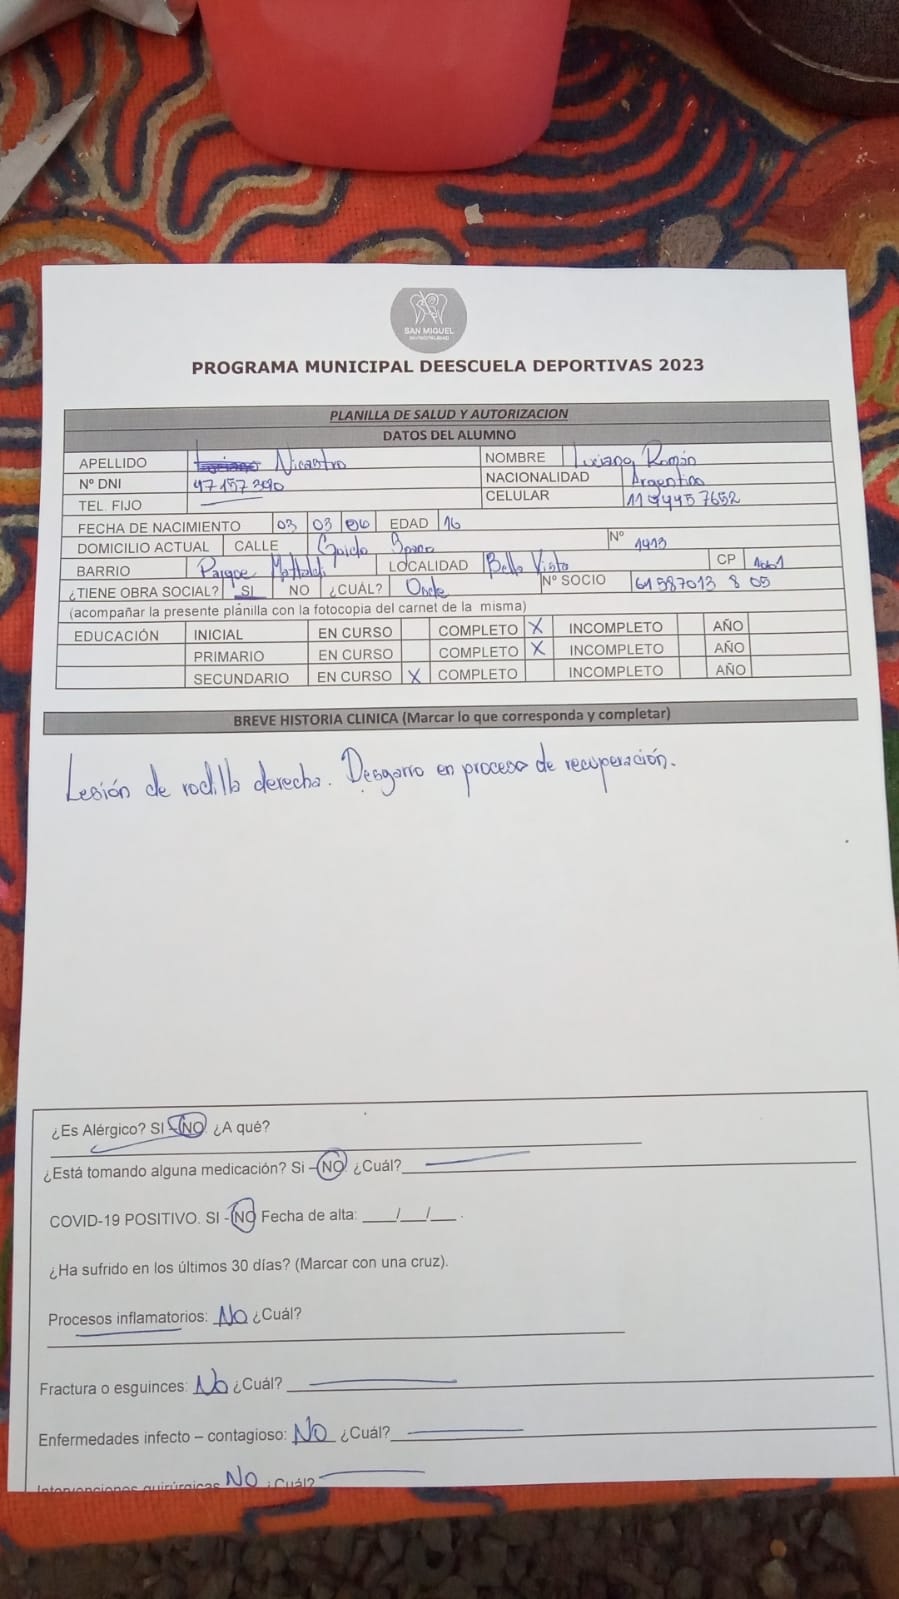 SAN MIGUEL
MUNICIPALIDAD
PROGRAMA MUNICIPAL DEESCUELA DEPORTIVAS 2023
PLANILLA DE SALUD Y AUTORIZACION
DATOS DEL ALUMNO
APELLIDO Nicastro NOMBRE Luciano Román
Nº DNI 47157390 NACIONALIDAD Argentino
TEL. FIJO CELULAR
FECHA DE NACIMIENTO 03 03 06 EDAD 16
DOMICILIO ACTUAL CALLE Guido Spano Nº 1413
BARRIO Parque Mattaldi LOCALIDAD Bella Vista CP 1661
¿TIENE OBRA SOCIAL? SI NO ¿CUÁL? Osde Nº SOCIO 61 587013 8 05
(acompañar la presente planilla con la fotocopia del carnet de la misma)
EDUCACIÓN INICIAL EN CURSO COMPLETO X INCOMPLETO AÑO
PRIMARIO EN CURSO COMPLETO X INCOMPLETO AÑO
SECUNDARIO EN CURSO X COMPLETO INCOMPLETO AÑO
BREVE HISTORIA CLINICA (Marcar lo que corresponda y completar)
Lesión de rodilla derecha. Desgarro en proceso de recuperación.
¿Es Alérgico? SI - NO ¿A qué?
¿Está tomando alguna medicación? Si – NO ¿Cuál?
COVID-19 POSITIVO. SI - NO Fecha de alta: ___/___/___ .
¿Ha sufrido en los últimos 30 días? (Marcar con una cruz).
Procesos inflamatorios: No ¿Cuál?
Fractura o esguinces: No ¿Cuál?
Enfermedades infecto – contagioso: No ¿Cuál?
Intervenciones quirúrgicas No ¿Cuál?